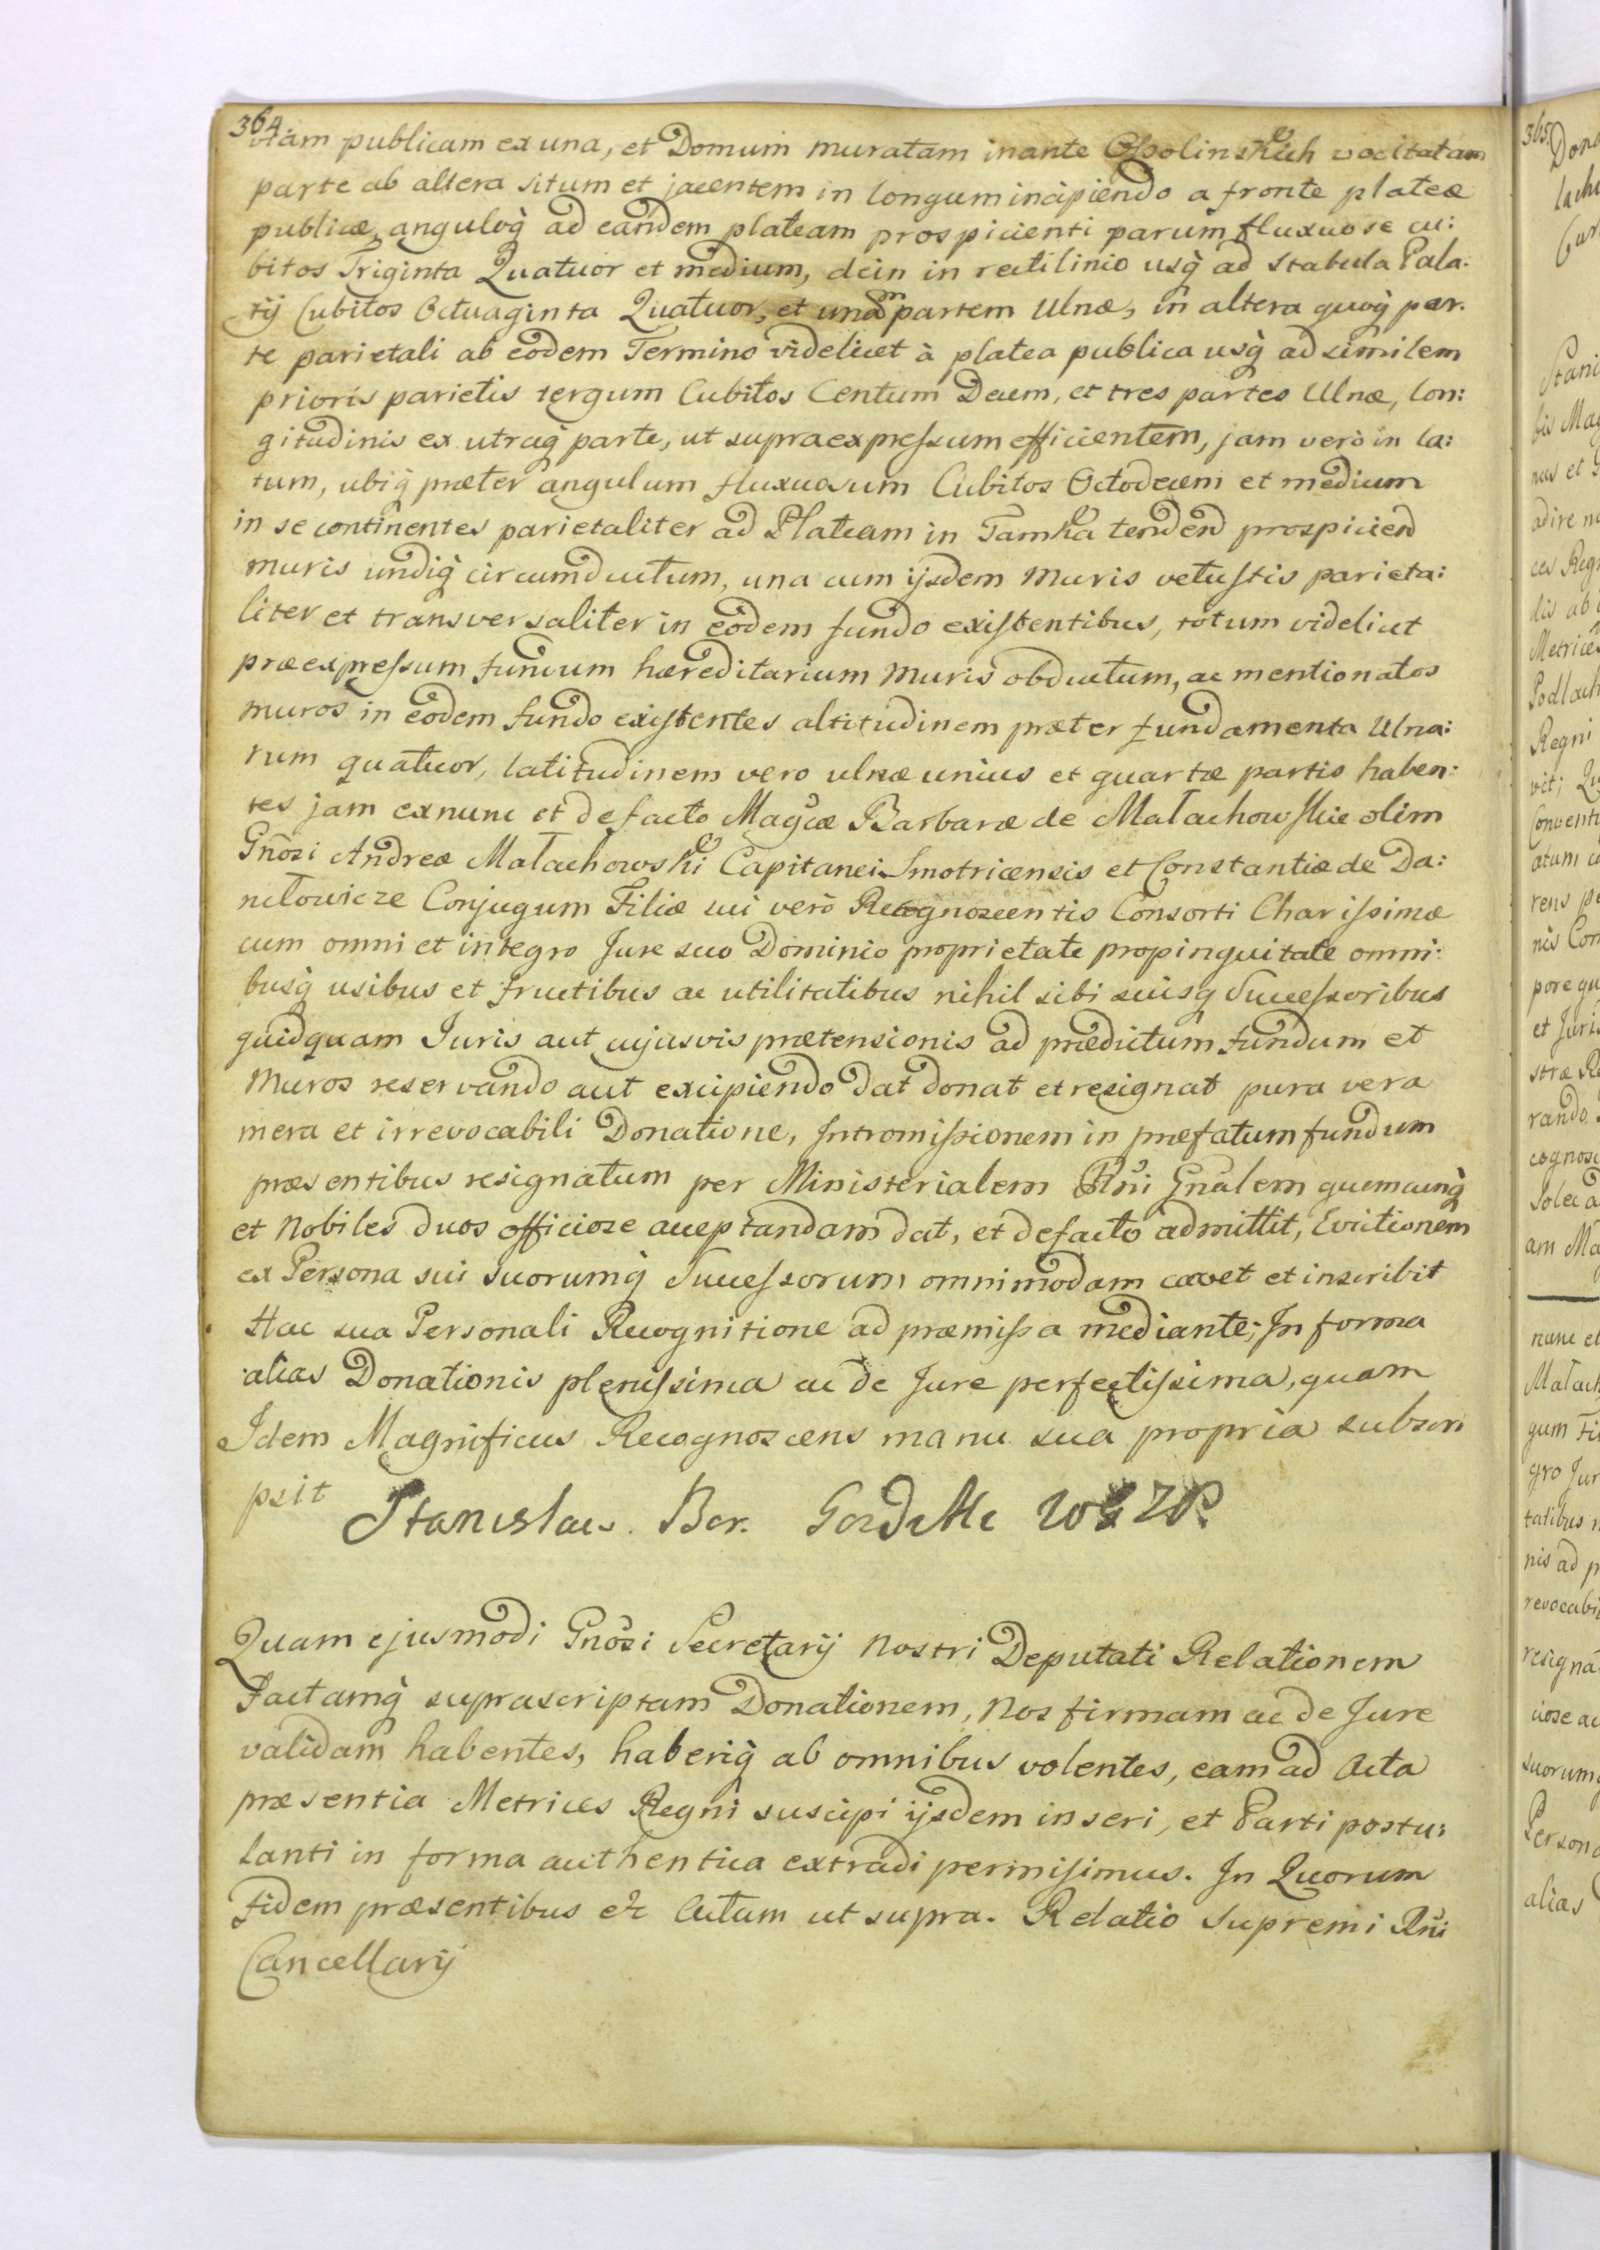 364
viam publicam ex una, et Domum muratam inante Ossolinskich vocitatam
parte ab altera situm et jacentem in longum incipiendo a fronte plateæ
publicæ, anguloq̀ ad eandem plateam prospicienti parum fluxuose cu:
bitos Triginta Quatuor et medium, dein in rectilinio usq̀ ad stabula Pala:
tij Cubitos Octuaginta Quatuor, et unam partem Ulnæ, in altera quoq̀ par:
te parietali ab eodem Termino videlicet à platea publica usq̀ ad similem
prioris parietis tergum Cubitos Centum Decem, et tres partes Ulnæ, lon:
gitudinis ex utraq̀ parte, ut supraexpressum efficientem, jam verò in la:
tum, ubiq̀ præter angulum fluxuosum Cubitos Octodecem et medium
in se continentes parietaliter ad Plateam in Tamka tendend prospiciend
muris undiq̀ circumductum, una cum ijsdem Muris vetustis parieta:
liter et transversaliter in eodem fundo existentibus, totum videlicet
præexpressum fundum hæreditarium Muris obductum, ac mentionatos
muros in eodem fundo existentes altitudinem præter fundamenta Ulna:
rum quatuor, latitudinem vero ulnæ unius et quartæ partis haben:
tes jam exnunc et defacto Magcæ Barbaræ de Małachowskie olim
Gnosi Andreæ Małachowski Capitanei Smotricensis et Constantiæ de Da:
niłowicze Conjugum Filiæ sui verò Recognoscentis Consorti Charissimæ
cum omni et integro Jure suo Dominio proprietate propinquitate omni:
busq̀ usibus et fructibus ac utilitatibus nihil sibi suisq Successoribus
quidquam Juris aut cujusvis prætensionis ad prædictum fundum et
Muros reservando aut excipiendo dat donat et resignat pura vera
mera et irrevocabili Donatione, Intromissionem in præfatum fundum
præsentibus resignatum per Ministerialem Rñi Gñalem quemcunq̀
et Nobiles duos officiose acceptandam dat, et defacto admittit, Evictionem
ex Persona sui suorumq̀ Successorum omnimodam cavet et inscribit
Hac sua Personali Recognitione ad præmissa mediante; In forma
alias Donationis plenissima ac de Jure perfectissima, quam
Idem Magnificus Recognoscens manu sua propria subscri
psit
Stanislaus. Ber.
Quam ejusmodi Gnosi Secretarij Nostri Deputati Relationem
Factamq̀ suprascriptam Donationem, Nos firmam ac de Jure
validam habentes, haberiq̀ ab omnibus volentes, eam ad Acta
præsentia Metrices Regni suscipi ijsdem inseri, et Parti postu:
lanti in forma authentica extradi permisimus. In Quorum
Fidem præsentibus etc Actum ut supra. Relatio Supremi Rñi
Cancellarij